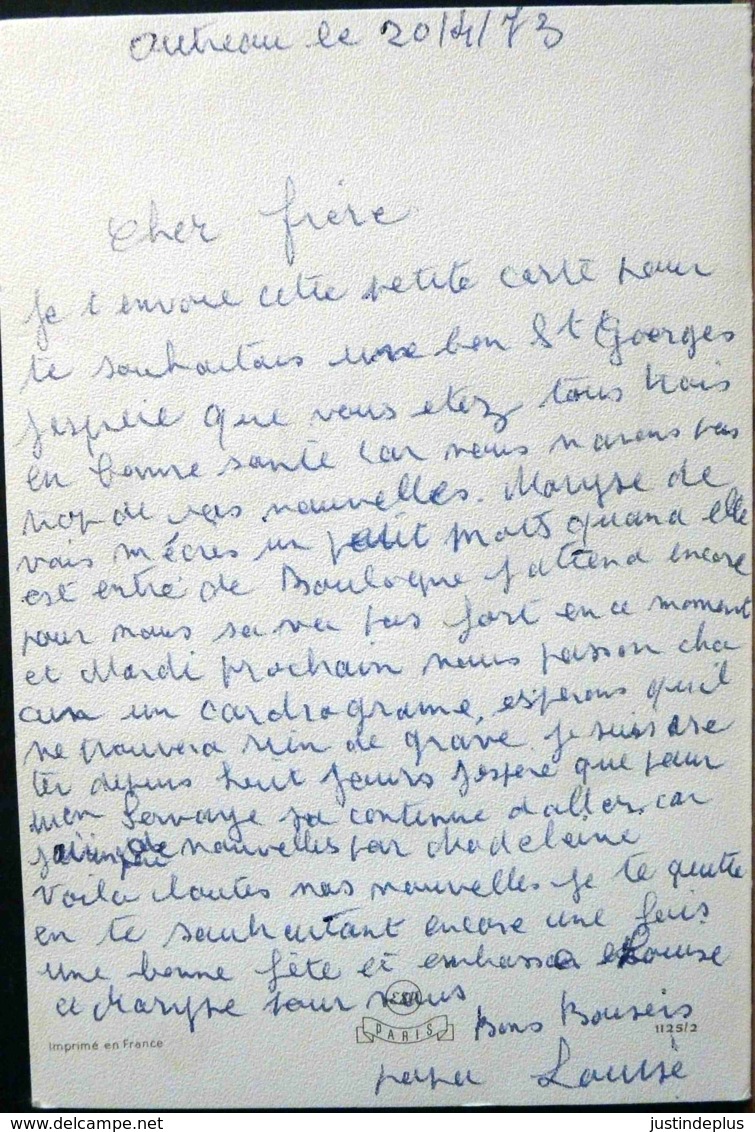 Outreau le 20/4/73
Cher frère
Je t envoie cette petite carte pour
te souhaitais une bon St Georges
J'espere que vous etez tous trois
en bonne santé car nous navons pas
trop de vos nouvelles. Maryse de
vais m'écres un petit mots quand elle
est entré de Boulogne j attend encore
pour nous sa va pas fort en ce moment
et Mardi prochain nous passon cha
cun un cardiograme, esperons qu'il
ne trouvera rien de grave je suis are
ter depuis huit jours j'espere que pour
men Servaye sa continue d'aller, car
de nouvelles par Madeleine
Voila toutes nos nouvelles je te quitte
en te souhaitant encore une fois
une bonne fête et embrasse Louise
et Maryse pour nous
Bons Baisers
papa Louise
Imprimé en France
PARIS
1125/2
justindeplus